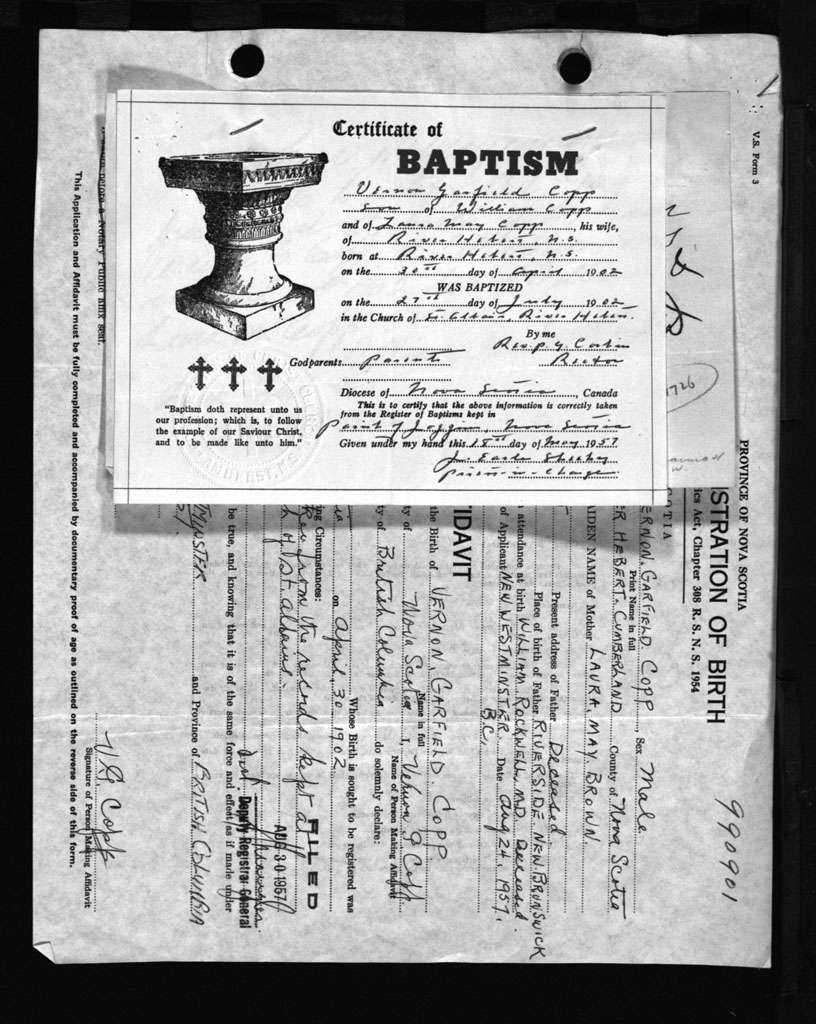 Certificate of
BAPTISM
Vernon Garfield Copp
Son of William Copp
and of Laura May Copp, his wife,
of River Hebert, N.S.
born at River Hebert, N.S.
on the 30th day of April 1902
WAS BAPTIZED
on the 27th day of July 1902
in the Church of St. Albans, River Hebert.
By me
Rev. P. G.
Godparents Parents Rector
Diocese of Nova Scotia, Canada
This is to certify that the above information is correctly taken
from the Register of Baptisms kept in
Point of Joggin, Nova Scotia
Given under my hand this 1st day of May 1957
J. Earle
Priest-in-Charge
"Baptism doth represent unto us
our profession; which is, to follow
the example of our Saviour Christ,
and to be made like unto him."
V.S. Form 3
1726
PROVINCE OF NOVA SCOTIA
ISTRATION OF BIRTH
ics Act, Chapter 308 R. S. N. S. 1954
990901
OTIA
ERNON. GARFIELD. COPP, Sex Male
Print Name in full
R HEBERT. CUMBERLAND County of Nova Scotia
AIDEN NAME of Mother LAURA. MAY. BROWN.
Present address of Father Deceased
Place of birth of Father RIVERSIDE. NEW. BRUNSWICK
attendance at birth WILLIAM. ROCKWELL. M.D. Deceased.
of Applicant NEW WESTMINSTER. Date Aug 24, 1957.
B.C.
IDAVIT
the Birth of VERNON. GARFIELD. COPP
Name in full
ty of Nova Scotia I, Vernon G Copp
Name of Person Making Affidavit
ty of British Columbia do solemnly declare:
Whose Birth is sought to be registered was
on April, 30 1902.
ng Circumstances:
from the records kept at
h of St. Albans.
FILED
AUG 30 1957
Deputy Registrar General
be true, and knowing that it is of the same force and effect as if made under
MINSTER and Province of BRITISH COLUMBIA
V G Copp
Signature of Person Making Affidavit
This Application and Affidavit must be fully completed and accompanied by documentary proof of age as outlined on the reverse side of this form.